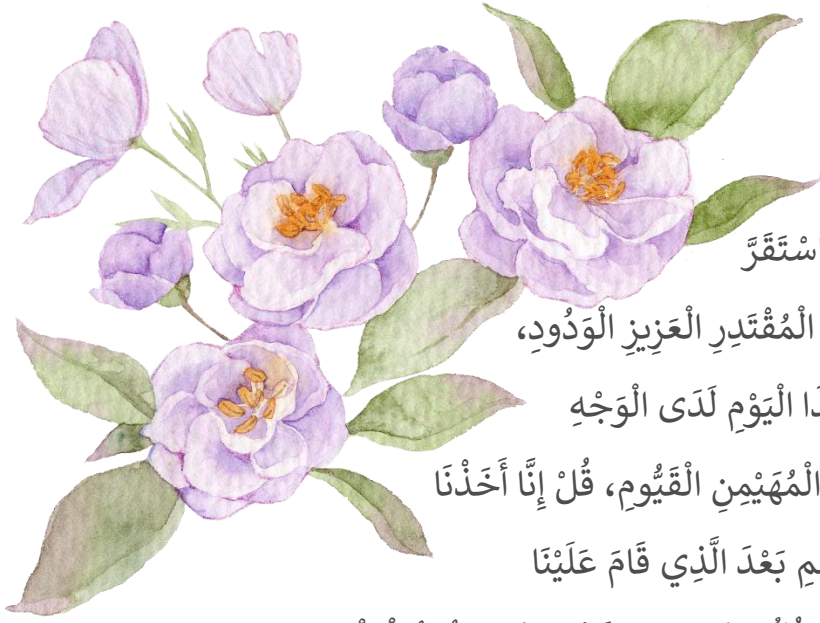 اسْتَقَرَّ
الْمُقْتَدِرِ الْعَزِيزِ الْوَدُودِ،
الْيَوْمِ لَدَى الْوَجْهِ
الْمُهَيْمِنِ الْقَيُّومِ، قُلْ إِنَّا أَخَذْنَا
بَعْدَ الَّذِي قَامَ عَلَيْنَا